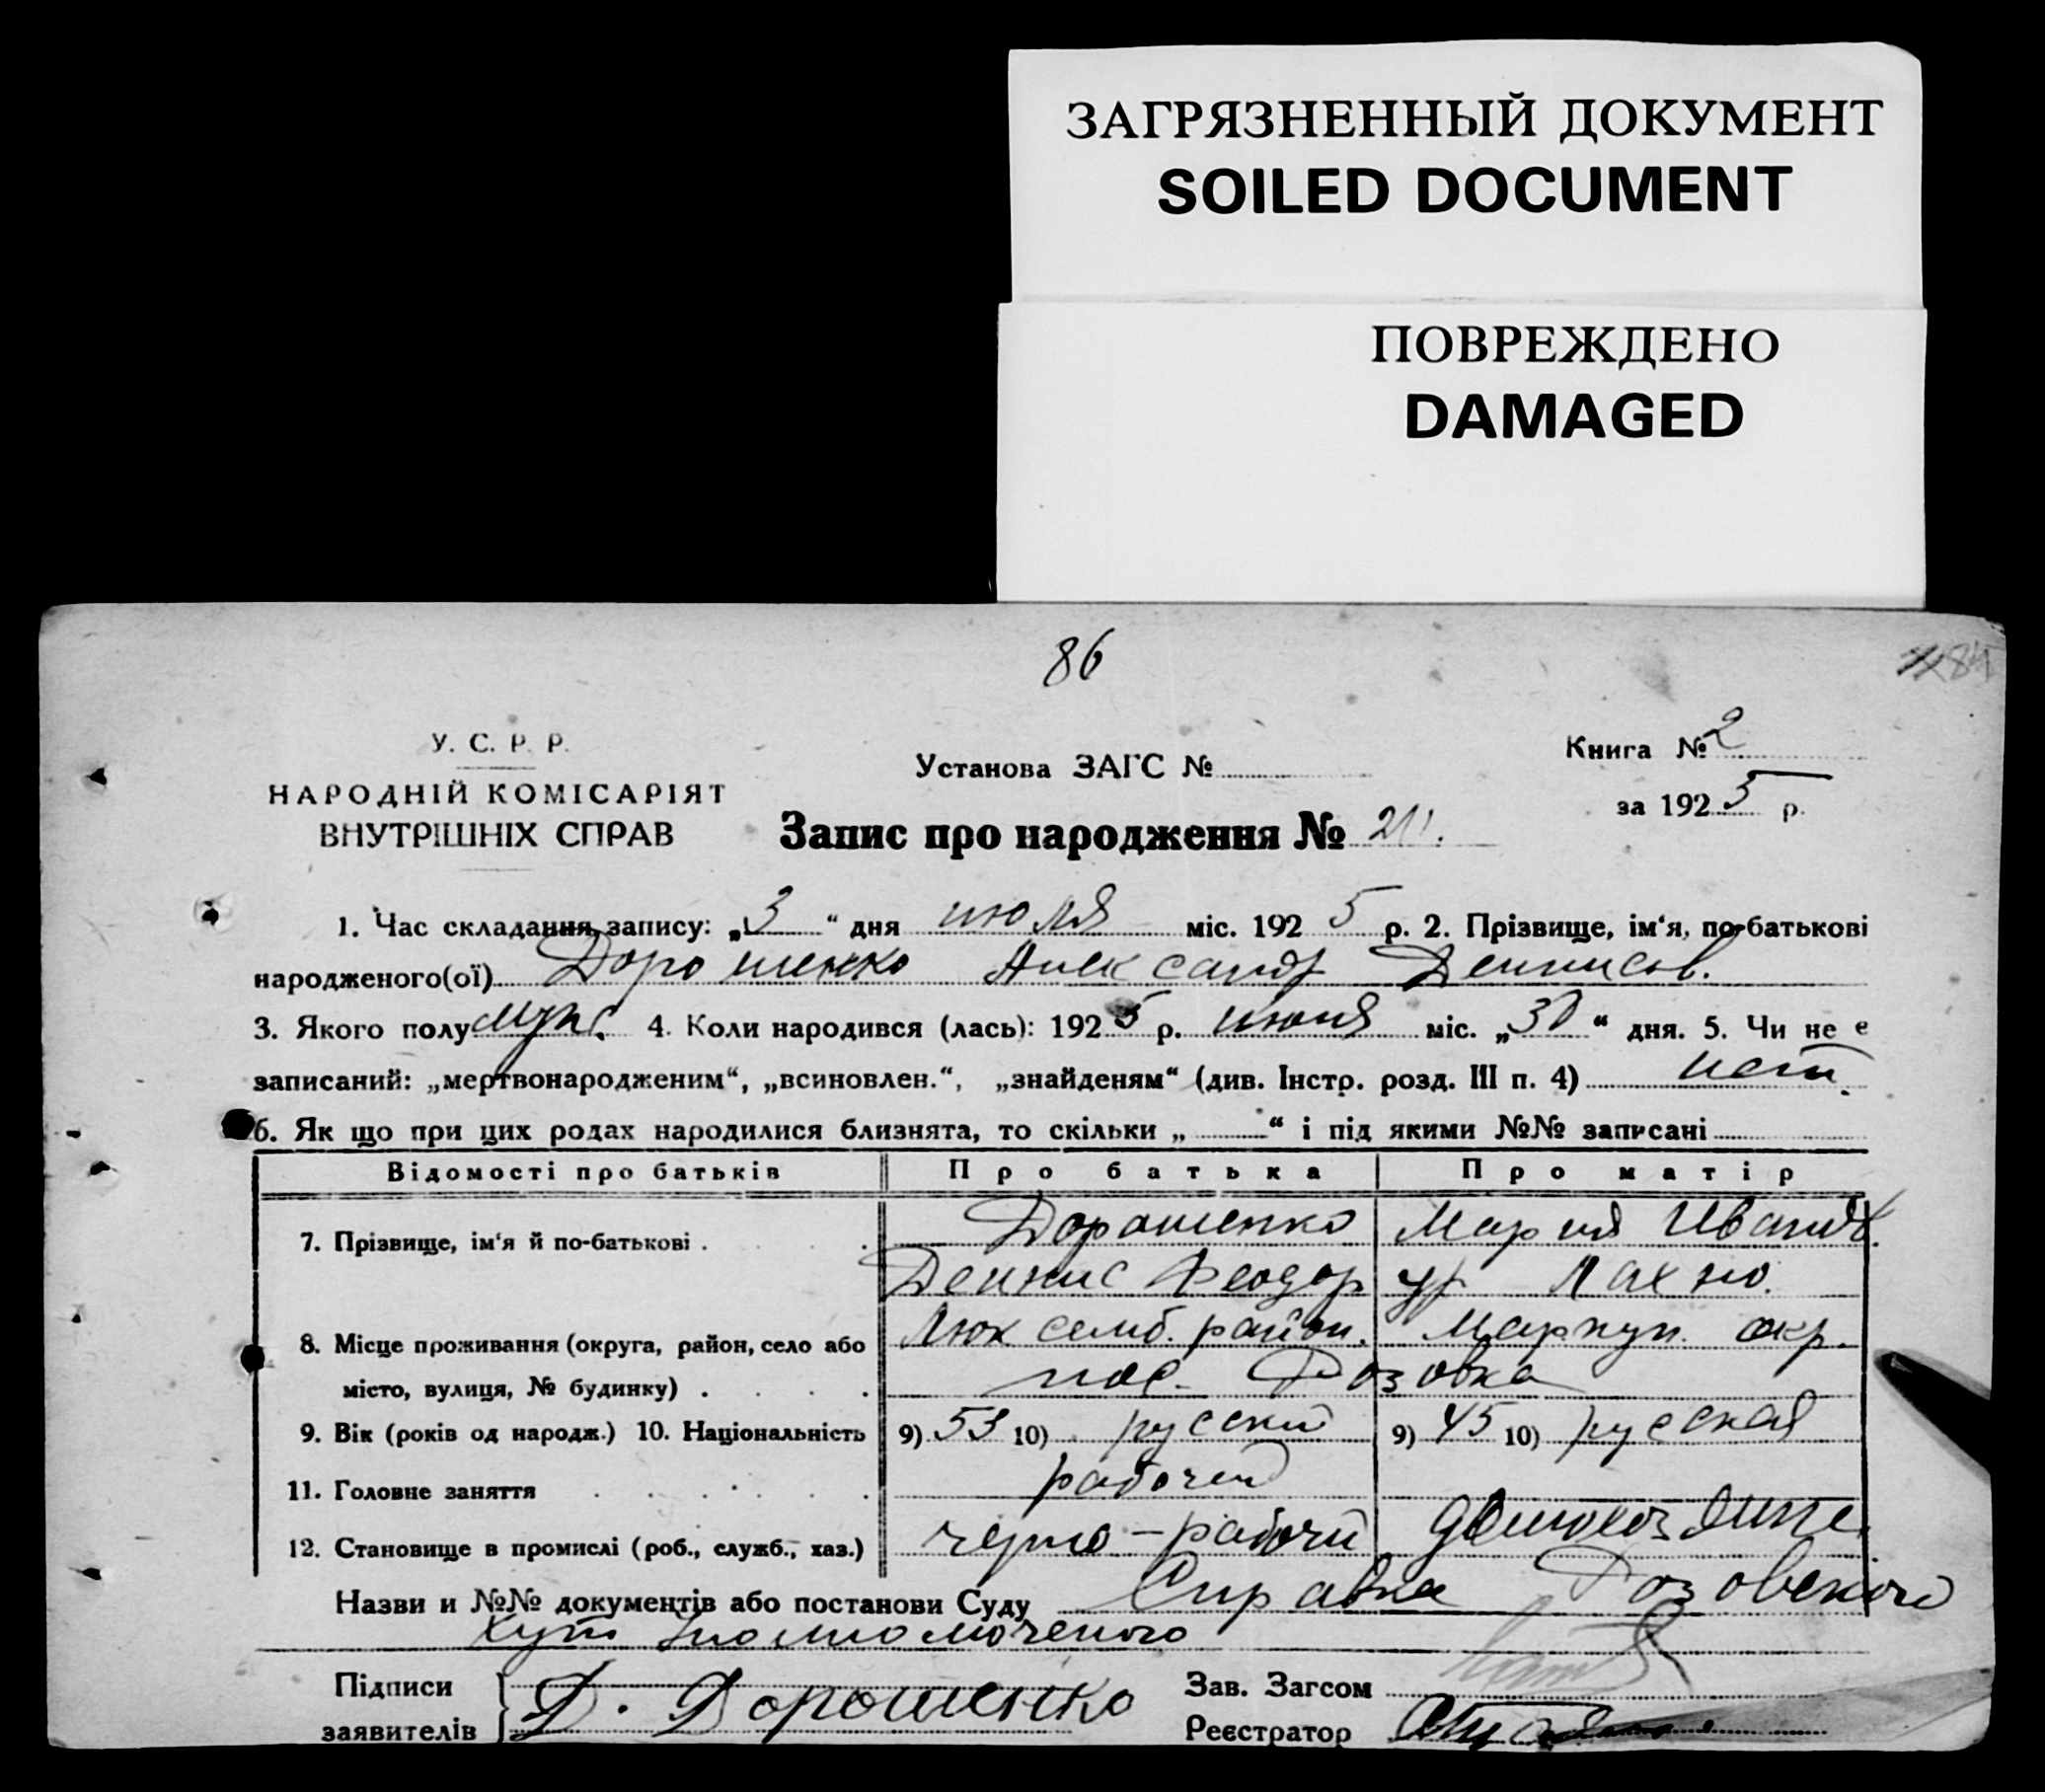 ЗАГРЯЗНЕННЫЙ ДОКУМЕНТ
SOILED DOCUMENT
ПОВРЕЖДЕНО
DAMAGED
86
У. С. Р. Р.
Установа ЗАГС №
Книга № 2
НАРОДНІЙ КОМІСАРІЯТ
за 1925 р.
ВНУТРІШНІХ СПРАВ
Запис про народження №
1. Час складання запису: „3“ дня июля міс. 1925 р. 2. Прізвище, ім‘я, по-батькові
народженого(ої) Дорошенко Александр Деннисов.
3. Якого полу муж. 4. Коли народився (лась): 1925 р. июня міс. „30“ дня. 5. Чи не е
записаний: „мертвонародженим“, „всиновлен.“, „знайденям“ (див. Інстр. розд. III п. 4) нет.
6. Як що при цих родах народилися близнята, то скільки „ “ і під якими №№ записані
Відомості про батьків Про батька Про матір
7. Прізвище, ім‘я й по-батькові . Дорошенко Мария Иванов.
Деннис Феодор ур Лахно.
8. Місце проживання (округа, район, село або Люксемб. район. Мариуп. окр.
місто, вулиця, № будинку) . пос. Розовка
9. Вік (років од народж.) 10. Національність 9) 53 10) русский 9) 45 10) русская
11. Головне заняття рабочий
12. Становище в промислі (роб., служб., хаз.) черно-рабочий домохозяйке.
Назви и №№ документів або постанови Суду Справка Розовского
Хут
Підписи
заявителів Д. Дорошенко
Зав. Загсом
Реєстратор